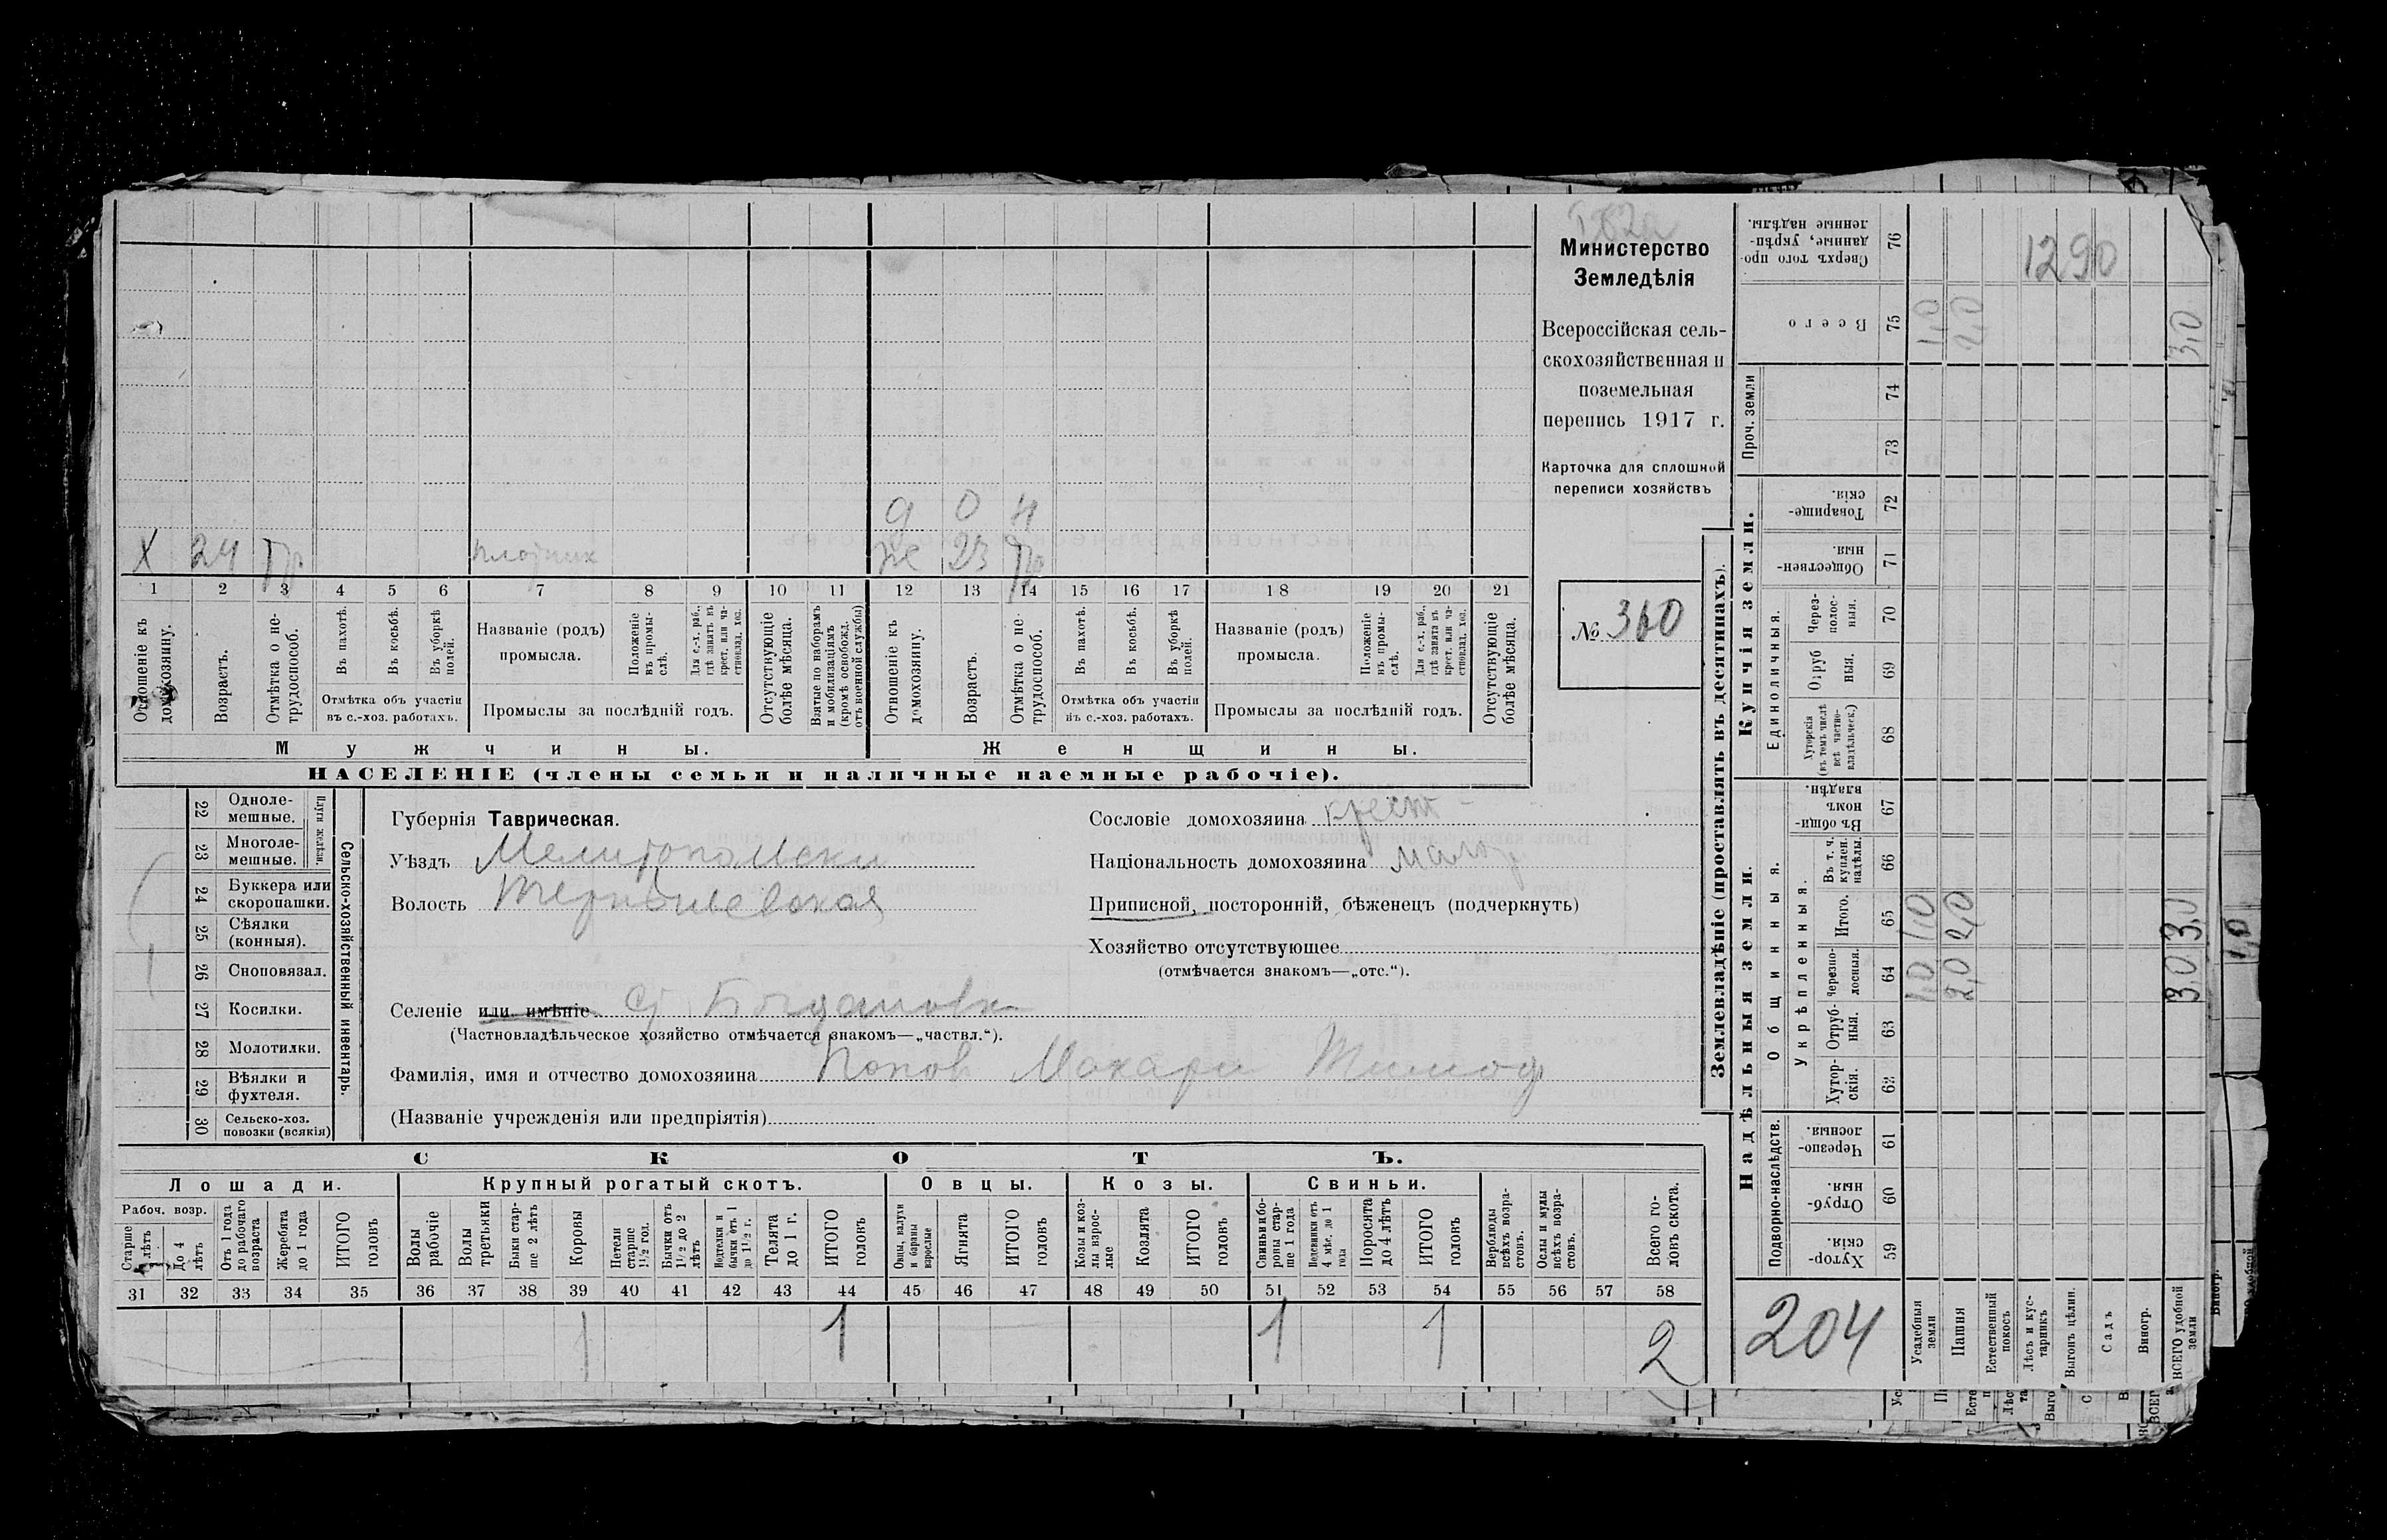 Министерство
Земледѣлія
Всероссійская сель-
скохозяйственная и
поземельная
перепись 1917 г.
Карточка для сплошной
переписи хозяйствъ
№ 360
д 0 н
X 24 Тр плотник же 23 Тр
1 2 3 4 5 6 7 8 9 10 11 12 13 14 15 16 17 18 19 20 21
Отношеніе къ домохозяину.
Возрастъ.
Отмѣтка о не-трудоспособ.
Въ пахотѣ.
Въ косьбѣ.
Въ уборкѣ полей.
Отмѣтка объ участіи въ с.-хоз. работахъ.
Названіе (родъ) промысла.
Положеніе въ промы-слѣ.
Для с.-х. раб., гдѣ занятъ въ крест. или ча-стновлад. хоз.
Промыслы за послѣдній годъ.
Отсутствующіе болѣе мѣсяца.
Взятые по наборамъ и мобилизаціямъ (кромѣ освобожд. отъ военной службы)
Отношеніе къ домохозяину.
Возрастъ.
Отмѣтка о не-трудоспособ.
Въ пахотѣ.
Въ косьбѣ.
Въ уборкѣ полей.
Отмѣтка объ участіи въ с.-хоз. работахъ.
Названіе (родъ) промысла.
Положеніе въ промы-слѣ.
Для с.-х. раб., гдѣ занята въ крест. или ча-стновлад. хоз.
Промыслы за послѣдній годъ.
Отсутствующіе болѣе мѣсяца.
Мужчины. Женщины.
НАСЕЛЕНІЕ (члены семьи и наличные наемные рабочіе).
Сельско-хозяйственный инвентарь.
Плуги желѣзн.
22 Одноле-мешные.
23 Многоле-мешные.
24 Буккера или скоропашки.
25 Сѣялки (конныя).
26 Сноповязал.
27 Косилки.
28 Молотилки.
29 Вѣялки и фухтеля.
30 Сельско-хоз. повозки (всякія)
Губернія Таврическая.
Уѣздъ Мелитопольски
Волость
Селеніе или имѣніе с. Богдановка
(Частновладѣльческое хозяйство отмѣчается знакомъ—„частвл.“).
Фамилія, имя и отчество домохозяина Попов Макари Тимоф
(Названіе учрежденія или предпріятія)
Сословіе домохозяина крест-
Національность домохозяина малор
Приписной, посторонній, бѣженецъ (подчеркнуть)
Хозяйство отсутствующее
(отмѣчается знакомъ—„отс.“).
СКОТЪ.
Лошади. Крупный рогатый скотъ. Овцы. Козы. Свиньи.
Рабоч. возр.
Старше 4 лѣтъ
До 4 лѣтъ
Отъ 1 года до рабочаго возраста
Жеребята до 1 года
ИТОГО головъ
Волы рабочіе
Волы третьяки
Быки стар-ше 2 лѣтъ
Коровы
Нетели старше 1½ год.
Бычки отъ 1½ до 2 лѣтъ
бычки отъ 1 до 1½ г.
Телята до 1 г.
ИТОГО головъ
Овцы, валухи и бараны взрослые
Ягнята
ИТОГО головъ
Козы и коз-лы взрос-лые
Козлята
ИТОГО головъ
Свиньи и бо-ровы стар-ше 1 года
Подсвинки отъ 4 мѣс. до 1 года
Поросята до 4 лѣтъ
ИТОГО головъ
Верблюды всѣхъ возра-стовъ.
Ослы и мулы всѣхъ возра-стовъ.
Всего го-ловъ скота.
31 32 33 34 35 36 37 38 39 40 41 42 43 44 45 46 47 48 49 50 51 52 53 54 55 56 57 58
1 1 1 1 2
Землевладѣніе (проставлять въ десятинахъ).
Надѣльныя земли. Купчія земли. Проч. земли
Подворно-наслѣдств.
Общинныя.
Укрѣпленныя.
Единоличныя.
59 Хутор-скія.
60 Отруб-ныя.
61 Черезпо-лосныя.
62 Хутор-скія.
63 Отруб-ныя.
64 Черезпо-лосныя. 1,0 2,0 3,0
65 Итого. 1,0 2,0 3,0
66 Въ т. ч. куплен. надѣлы.
67 Въ общи-номъ владѣн.
68 Хуторскія (въ томъ числѣ всѣ частно-владѣльческ.)
69 Отруб ныя.
70 Через-полос-ныя.
71 Обществен-ныя.
72 Товарище-скія.
73
74
75 Всего 1,0 2,0 3,0
76 Сверхъ того про-данные, укрѣп-ленные надѣлы.
1290
204
Усадебныя земли
Пашня
Естественный покосъ
Лѣсъ и кус-тарникъ
Выгонъ цѣлин.
Садъ
Виногр.
ВСЕГО удобной земли
1,0